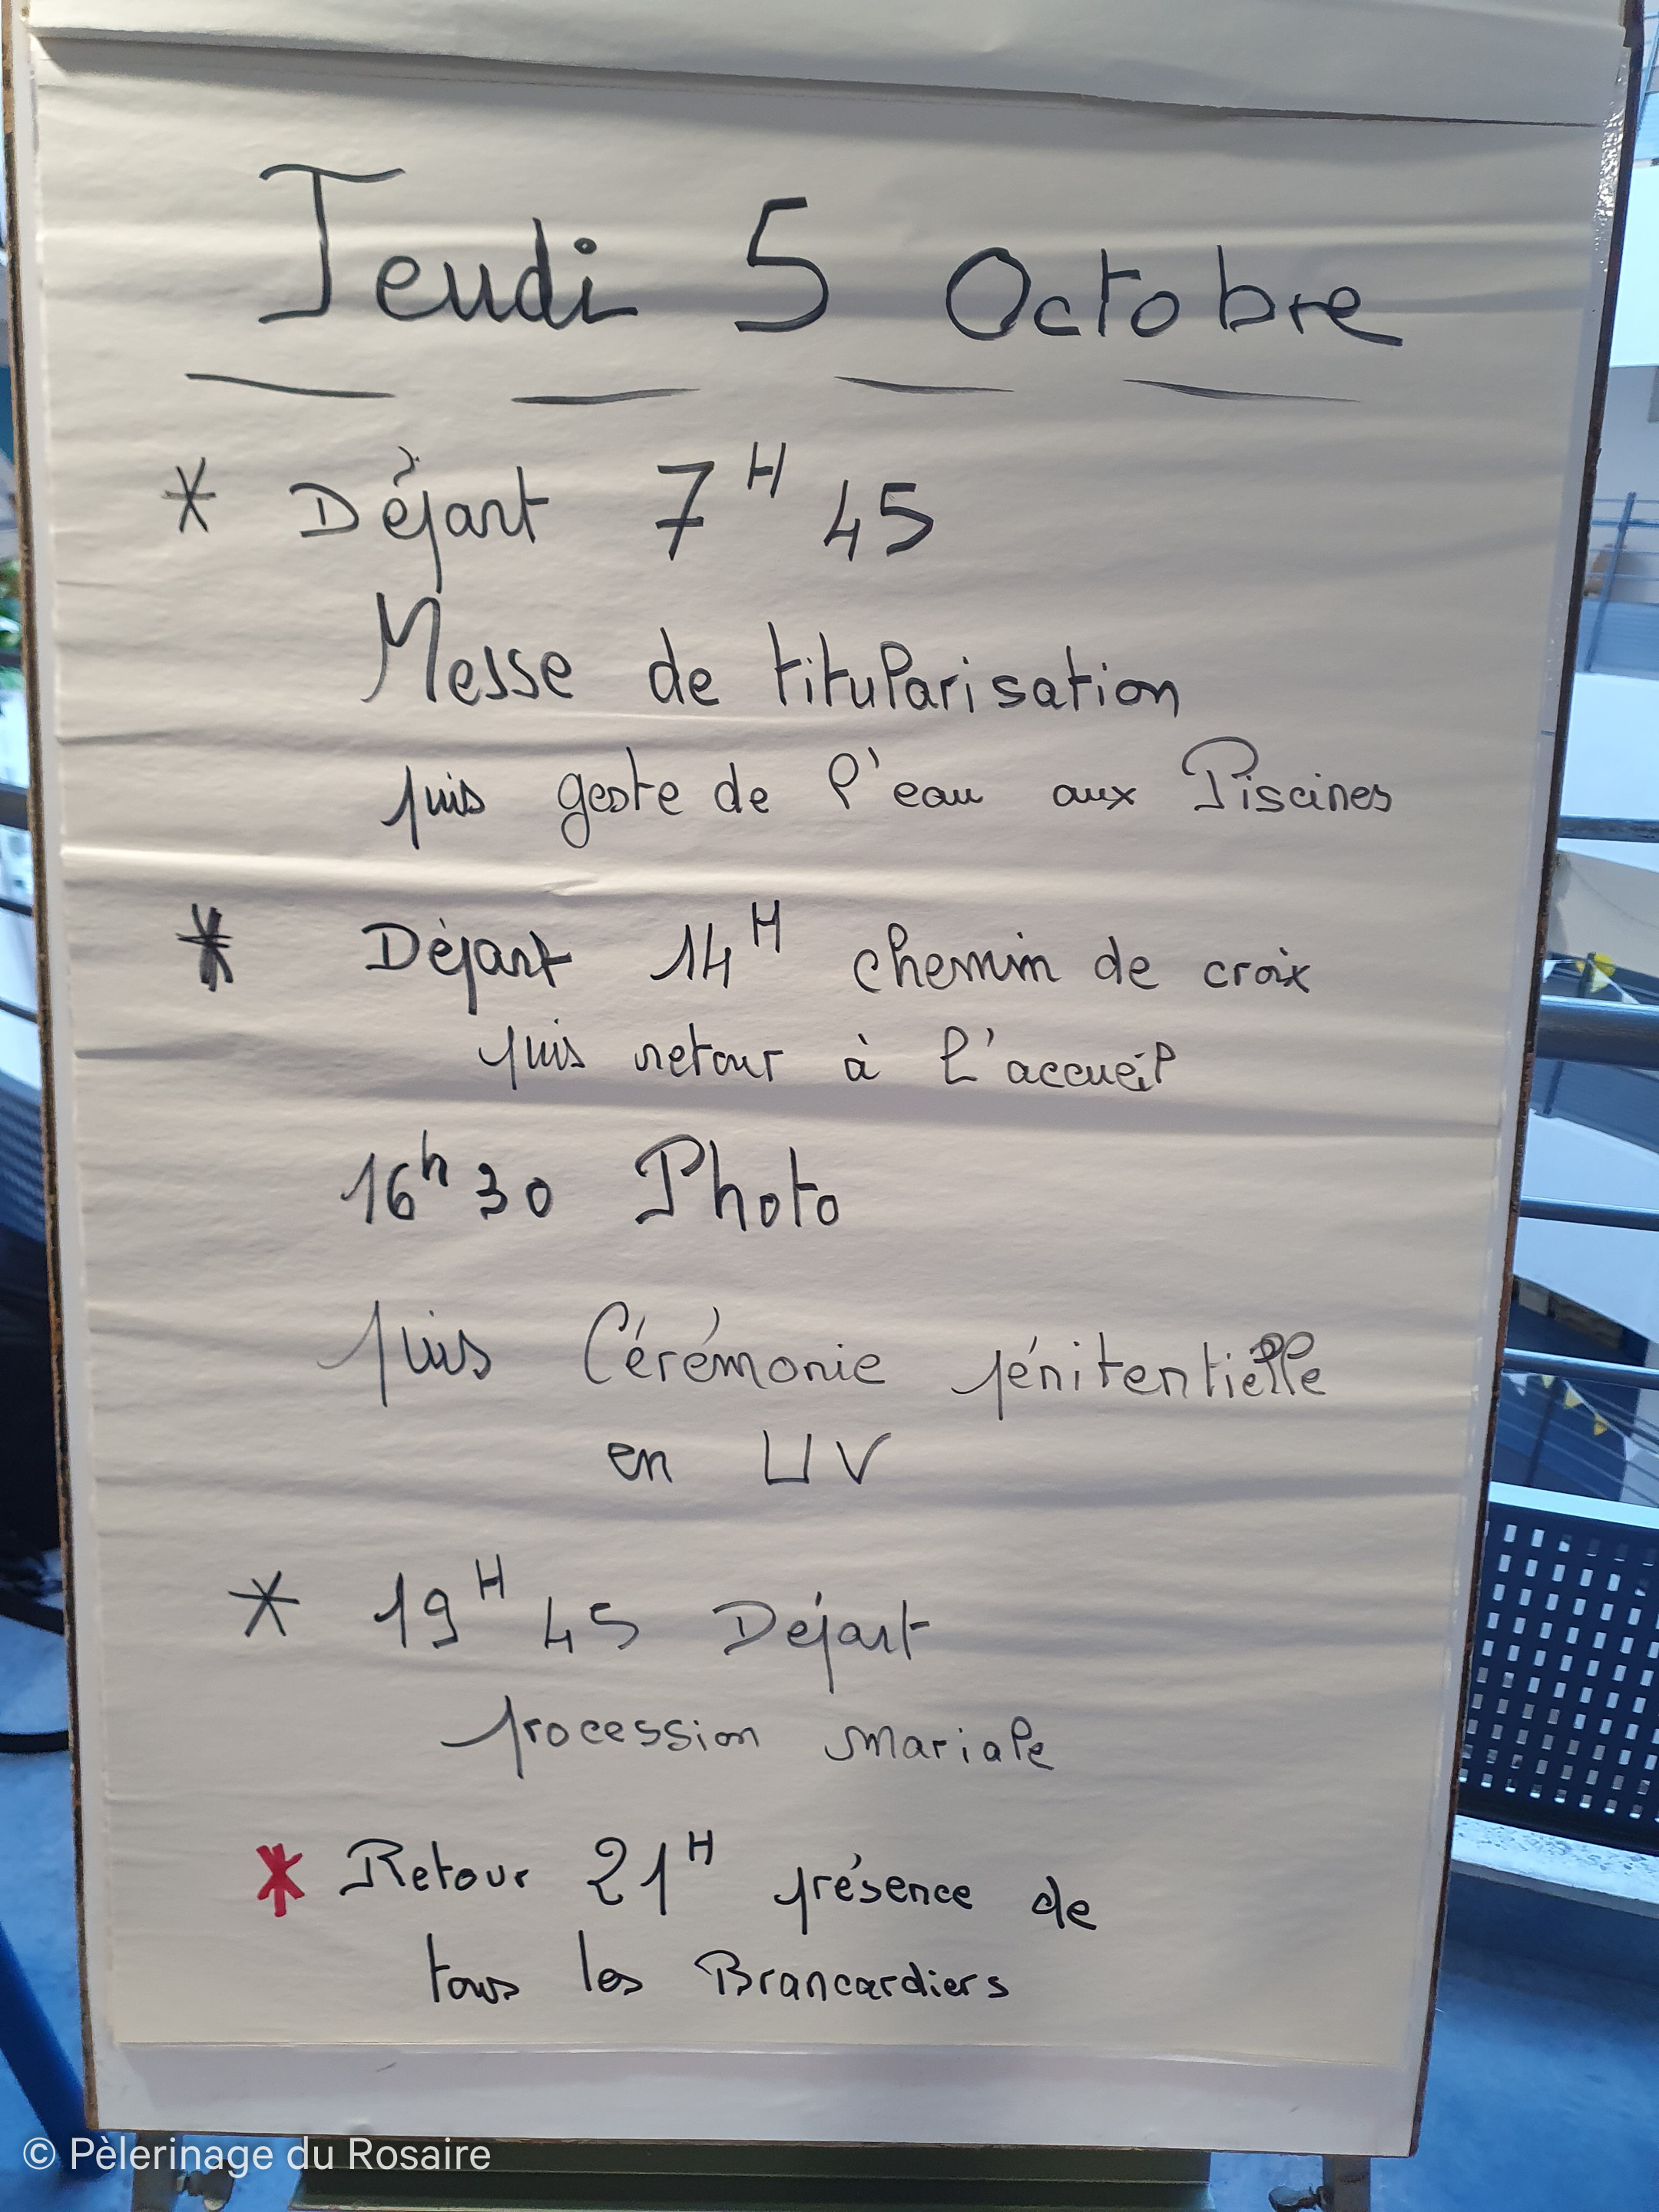 Jeudi 5 Octobre
* Départ 7H45
Messe de titularisation
puis geste de l'eau aux Piscines
* Départ 14H chemin de croix
puis retour à l'accueil
16h30 Photo
puis Cérémonie pénitentielle
en LIV
* 19H45 Départ
procession mariale
* Retour 21H présence de
tous les Brancardiers
© Pèlerinage du Rosaire